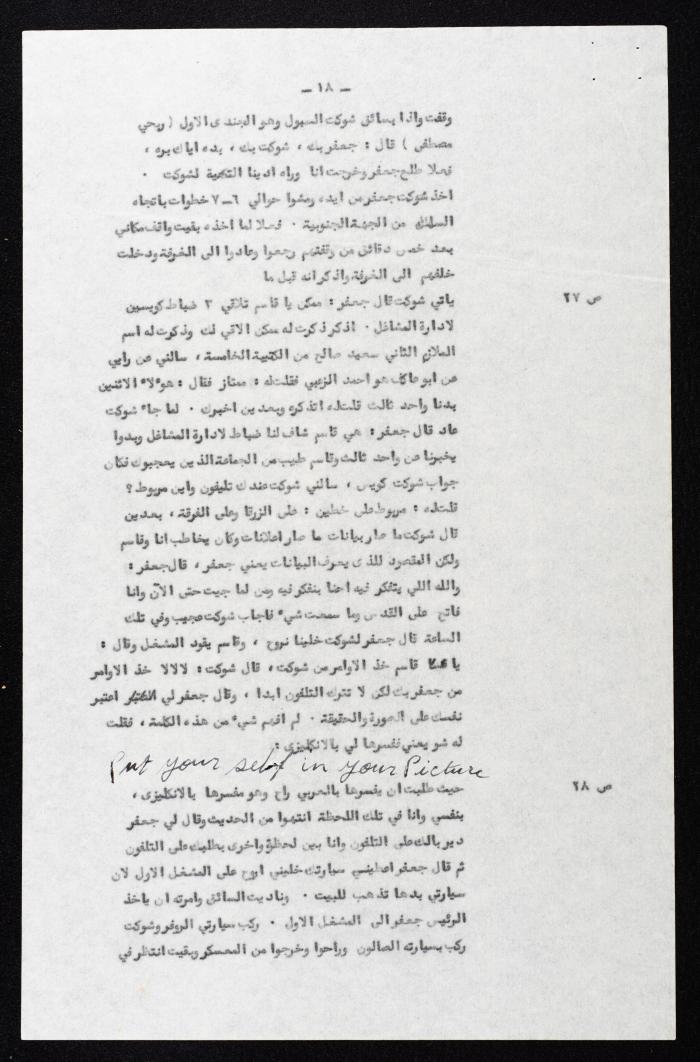 — ١٨ —
وقفت واذا بسائق شوكت السبول وهو الجندى الاول ( ربحي
مصطفى ) قال : جعفر بك ، شوكت بك ، بده اياك بره ،
فعلا طلع جعفر وخرجت انا وراه ادينا التحية لشوكت .
اخذ شوكت جعفر من ايده ومشوا حوالي ٦-٧ خطوات باتجاه
السلك من الجهة الجنوبية . فعلا لما اخذه بقيت واقف مكاني
بعد خمس دقائق من وقفتهم رجعوا وعادوا الى الغرفة ودخلت
خلفهم الى الغرفة واذكر انه قبل ما
ص ٢٧
ياتي شوكت قال جعفر : ممكن يا قاسم تلاقي ٣ ضباط كويسين
لادارة المشاغل . اذكر ذكرت له ممكن الاقي لك وذكرت له اسم
الملازم الثاني سعيد صالح من الكتيبة الخامسة ، سالني عن رايي
عن ابو عاكف هو احمد الزعبي فقلت له : ممتاز فقال : هوءلاء الاثنين
بدنا واحد ثالث قلت له اتذكره وبعدين اخبرك . لما جاء شوكت
عاد قال جعفر : هي قاسم شاف لنا ضباط لادارة المشاغل وبدوا
يخبرنا عن واحد ثالث وقاسم طيب من الجماعة الذين يعجبوك فكان
جواب شوكت كويس ، سالني شوكت عندك تليفون واين مربوط ؟
قلت له : مربوط على خطين : على الزرقا وعلى الفرقة ، بعدين
قال شوكت ما صار بيانات ما صار اعلانات وكان يخاطب انا وقاسم
ولكن المقصود للذى يعرف البيانات يعني جعفر ، قال جعفر :
والله اللي بتفكر فيه احنا بنفكر فيه ومن لما جيت حتى الآن وانا
فاتح على القدس وما سمعت شيء فاجاب شوكت عجيب وفي تلك
الساعة قال جعفر لشوكت خلينا نروح ، وقاسم يقود المشغل وقال :
يا قاسم خذ الاوامر من شوكت ، قال شوكت : لالالا خذ الاوامر
من جعفر بك لكن لا تترك التلفون ابدا ، وقال جعفر لي اعتبر
نفسك على الصورة والحقيقة . لم افهم شيء من هذه الكلمة ، فقلت
له شو يعني نفسرها لي بالانكليزى :
Put your self in your Picture
ص ٢٨
حيث طلبت ان يفسرها بالعربي راح وهو مفسرها بالانكليزى ،
بنفسي وانا في تلك اللحظة انتهوا من الحديث وقال لي جعفر
دير بالك على التلفون وانا بين لحظة واخرى بطلبك على التلفون
ثم قال جعفر اعطيني سيارتك خليني اروح على المشغل الاول لان
سيارتي بدها تذهب للبيت . وناديت السائق وامرته ان ياخذ
الرئيس جعفر الى المشغل الاول . ركب سيارتي الروفر وشوكت
ركب بسيارته الصالون وراحوا وخرجوا من المعسكر وبقيت انتظر في